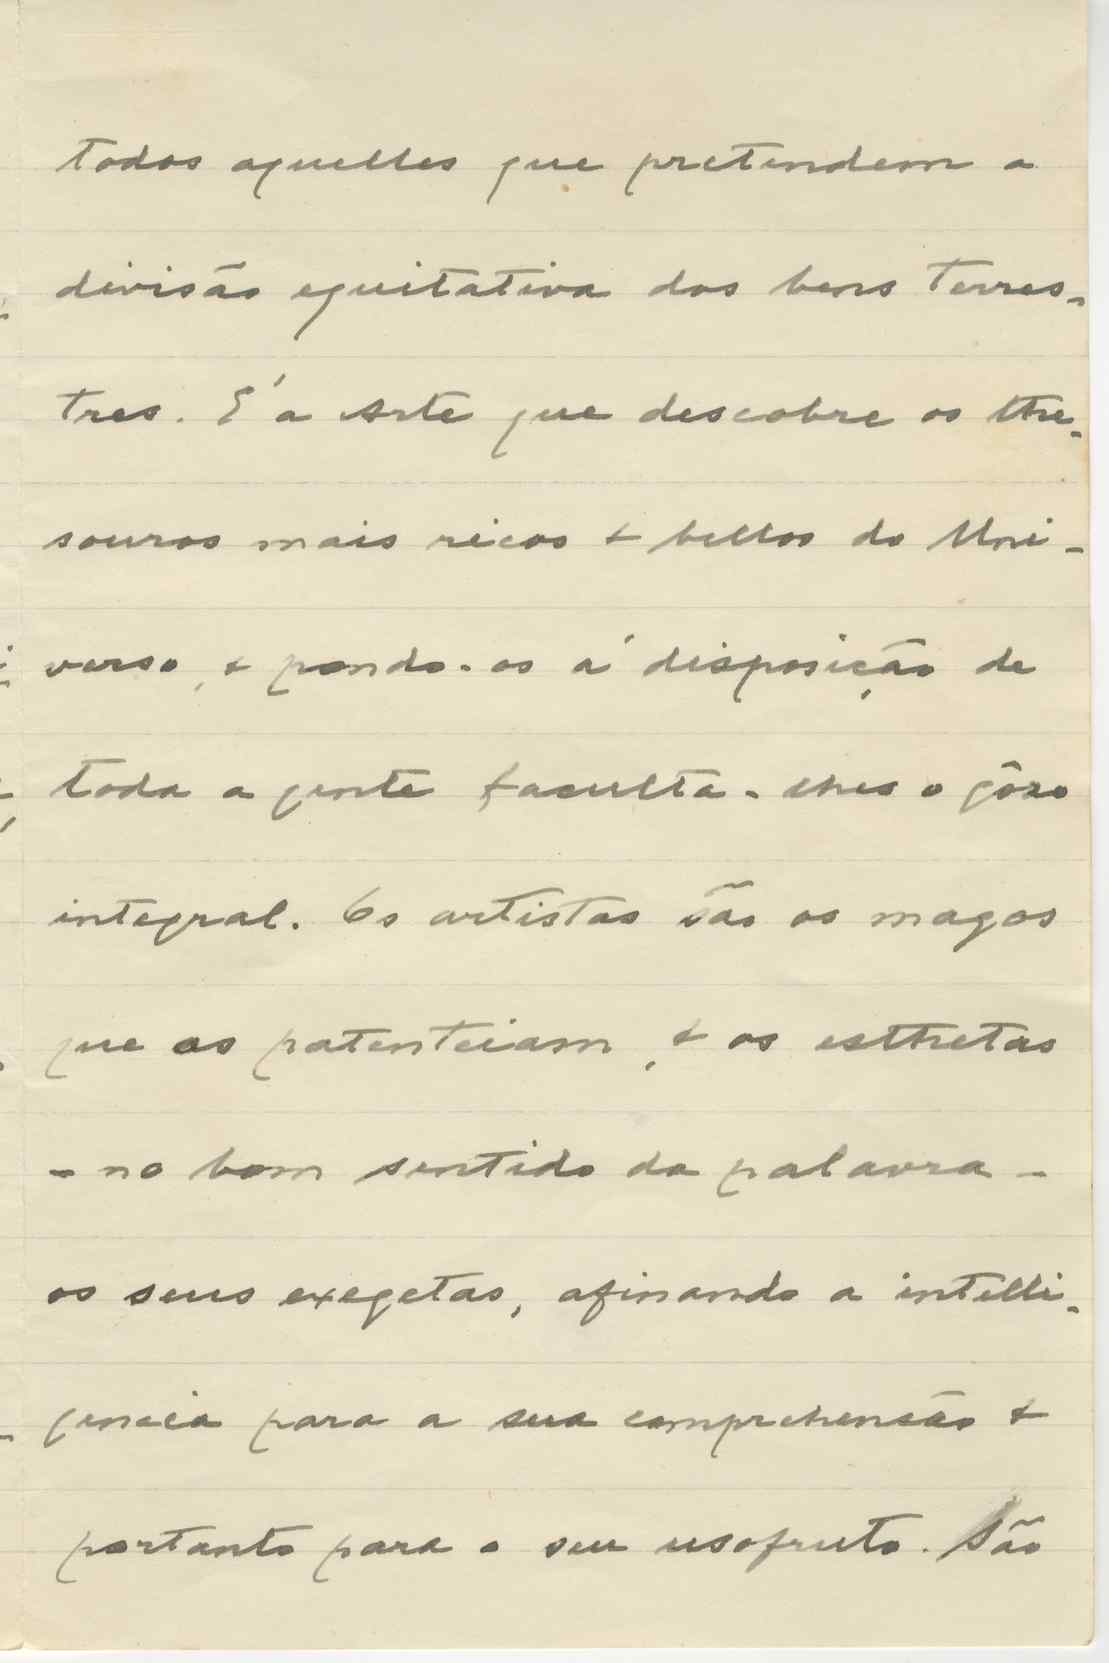 todos aquelles que pretendem a
divisão equitativa dos bens terres-
tres. E' a Arte que descobre os the-
souros mais ricos & bellos do Uni-
verso, & pondo-os á disposição de
toda a gente faculta-lhes o gôzo
integral. Os artistas são os magos
que os patenteiam, & os esthetas
- no bom sentido da palavra -
os seus exegetas, afinando a intelli-
gencia para a sua comprehensão &
portanto para o seu usofruto. São